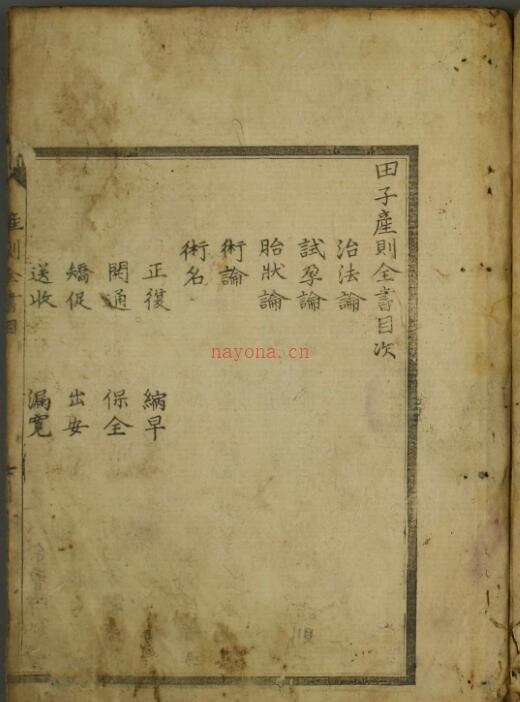 田子產則全書目次
治法論
試孕論
胎狀論
術論
術名
正復 縮早
開通 保全
矯促 出安
送收 漏寬
產則全書目
nayona.cn